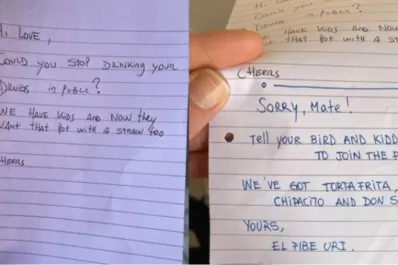 HI LOVE,
COULD YOU STOP DRINKING YOUR
DRUGS IN PUBLIC?
WE HAVE KIDS AND NOW THEY
WANT THAT POT WITH A STRAW TOO
CHEERS
HI LOVE,
COULD YOU
DRUGS IN PUBLIC?
WE HAVE KIDS AND NOW
THAT POT WITH A STRAW
CHEERS
SORRY, MATE!
TELL YOUR BIRD AND KIDD
TO JOIN THE F
WE'VE GOT TORTAFRITA,
CHIPACITO AND DON S
YOURS,
EL PIBE URI.